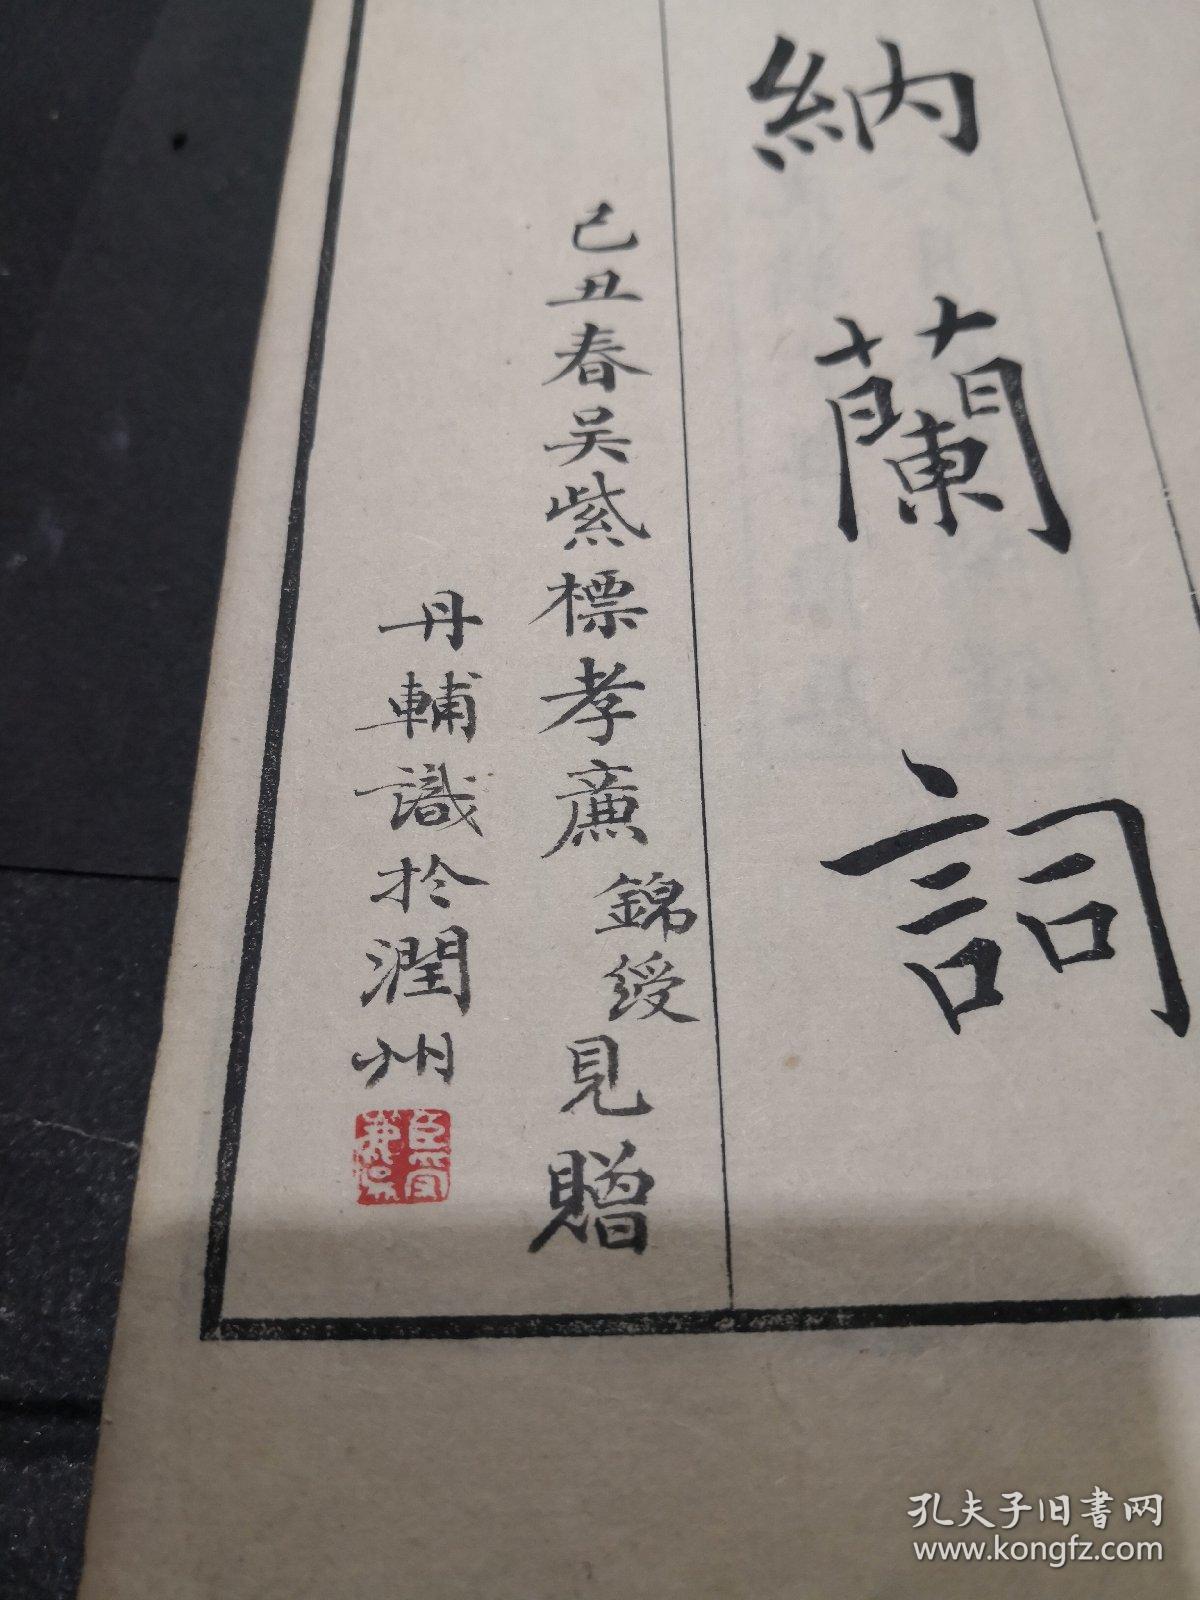 納蘭詞
己丑春吴紫標孝廉錦綬見贈
丹輔識於潤州
孔夫子旧书网
www.kongfz.com